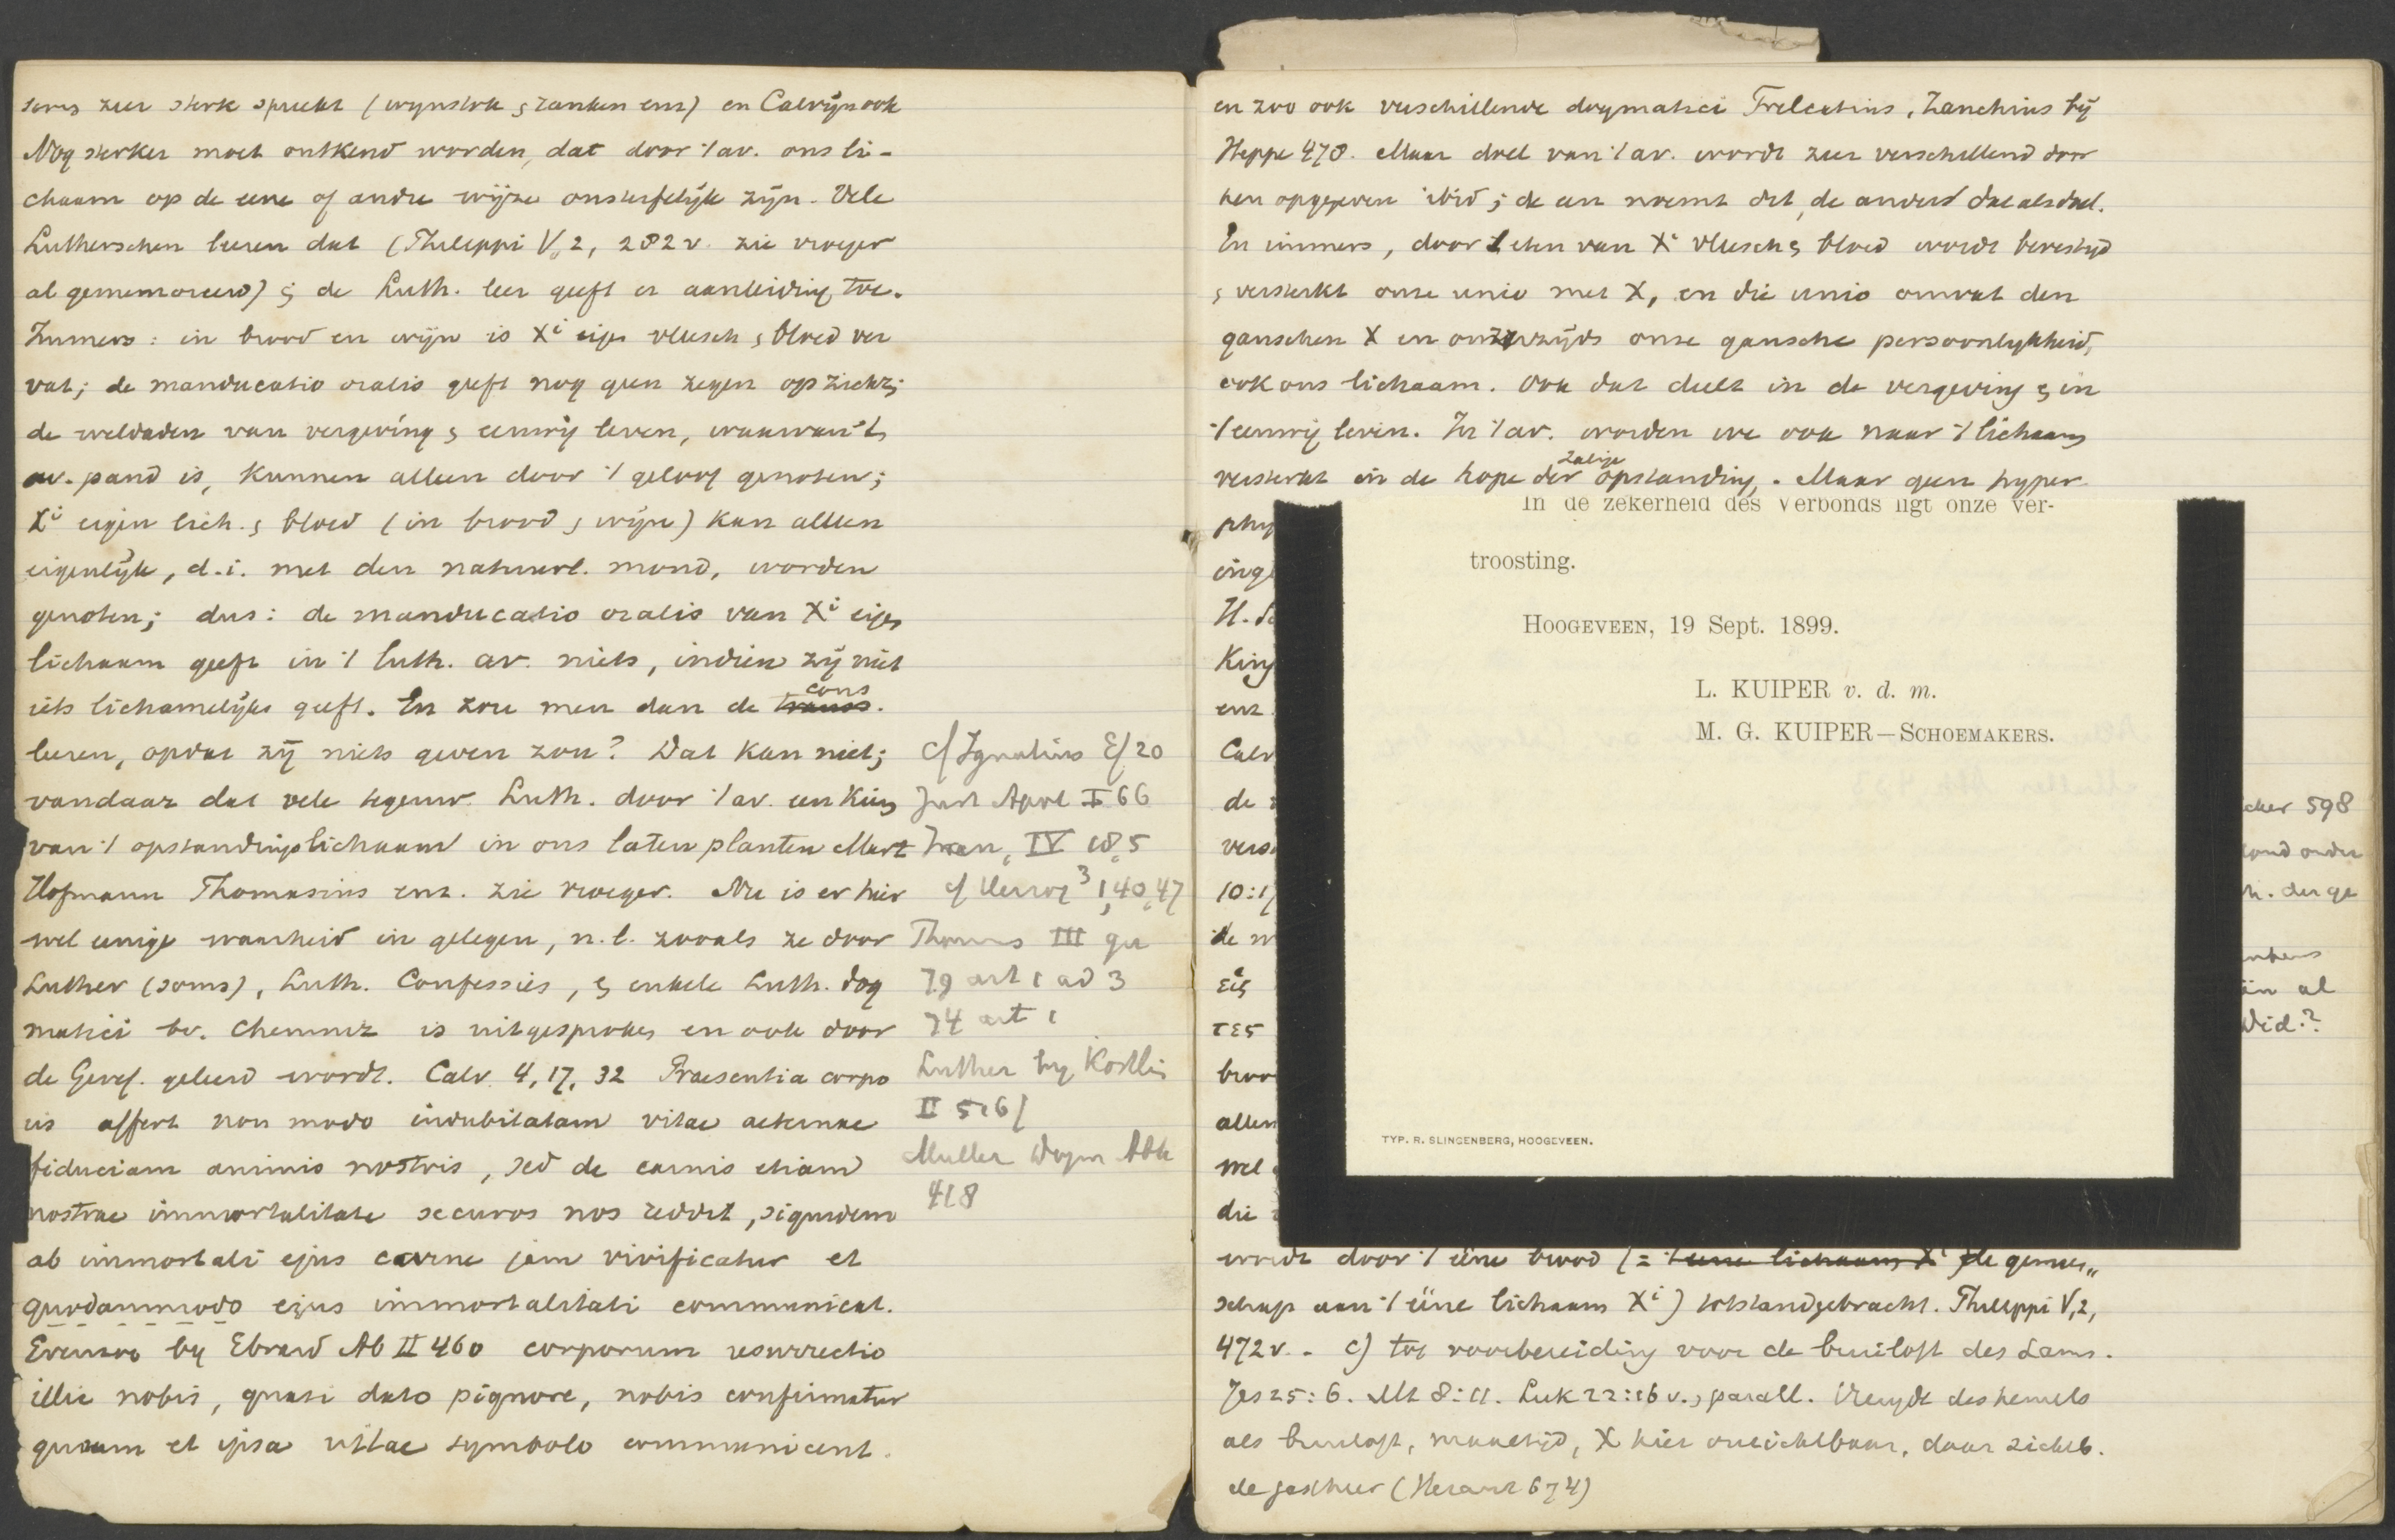 zeer sterk spreekt (wijnstok & ranken enz) en Calvijn ook
Nog sterker moet ontkend worden, dat door 't av. ons li-
chaam op de eene of andre wijze onsterfelijk zijn. Vele
Lutherschen leeren dat (Philippi V, 2, 282 v. zie vroeger
al gememoreerd) ; de Luth. leer geeft er aanleiding toe.
Immers: in brood en wijn is Xi eigen vleesch & bloed ver
vat; de manducatio oralis geeft nog geen zegen op zichz;
de weldaden van vergeving & eeuwig leven, waarvan 't
av. pand is, kunnen alleen door 't geloof genoten;
Xi eigen lich. & bloed (in brood & wijn) kan alleen
eigenlijk, d.i. met den natuurl. mond, worden
genoten; dus: de manducatio oralis van Xi eigen
lichaam geeft in 't luth. av. niets, indien zij niet
iets lichamelijks geeft. En zou men dan de cons.
leeren, opdat zij niets geven zou? Dat kan niet;
vandaar dat vele tegenw. Luth. door 't av. een kiem
van 't opstandingslichaam in ons laten planten Mart
Hofmann Thomasius enz. zie vroeger. Nu is er hier
wel eenige waarheid in gelegen, n.l. zooals ze door
Luther (soms), Luth. Confessies, & enkele Luth. dog
matici bv. Chemnitz is uitgesproken en ook door
de Geref. geleerd wordt. Calv. 4, 17, 32 Praesentia corpo
ris affert non modo indubitatam vitae aeternae
fiduciam animis nostris, sed de carnis etiam
nostrae immortalitate securos nos reddit, siquidem
ab immortali ejus carne jam vivificatur et
quodammodo ejus immortalitati communicat.
by Ebrard Ab II 460 corporum resurrectio
illic nobis, quasi dato pignore, nobis confirmatur
quum et ipsa vitae symbolo communicent.
cf Ignatius Ef 20
Just Apol I 66
Iren, IV 18,5
cf Herzog 3 1,40,47
Thomas III qu
79 art 1 ad 3
74 art 1
Luther by Köstlin
II 516f
Muller Dogm Abh
418
en zoo ook verschillende dogmatici Trelcatius, Zanchius bij
Heppe 478. Maar doel van 't av. wordt zeer verschillend door
hen opgegeven ibid; de een noemt dit, de ander dat als doel.
En immers, door 't eten van Xi vleesch & bloed wordt bevestigd
& versterkt onze unio met X, en die unio omvat den
ganschen X en onzerzijds onze gansche persoonlijkheid,
ook ons lichaam. Ook dat deelt in de vergeving & in
't eeuwig leven. In 't av. worden we ook naar 't lichaam
versterkt in de hope der zalige opstanding. Maar geen hyper
phy
In de zekerheid des Verbonds ligt onze ver-
troosting.
HOOGEVEEN, 19 Sept. 1899.
L. KUIPER v. d. m.
M. G. KUIPER—SCHOEMAKERS.
TYP. R. SLINGENBERG, HOOGEVEEN.
enz.
Calv
de
10:17
εις
τες
broo
allen
wel
die
598
der ge
al
Did.?
wordt door 't ééne brood (= 't eene lichaam Xi de gemeen„
schap aan 't ééne lichaam Xi) totstandgebracht. Philippi V, 2,
472 v. - c) tot voorbereiding voor de bruiloft des Lams.
Jes 25:6. Mt 8:11. Luk 22:16 v. & parall. Vreugde des hemels
als bruiloft, maaltijd, X hier onzichtbaar, daar zichtb.
de gastheer (Heraut 674)